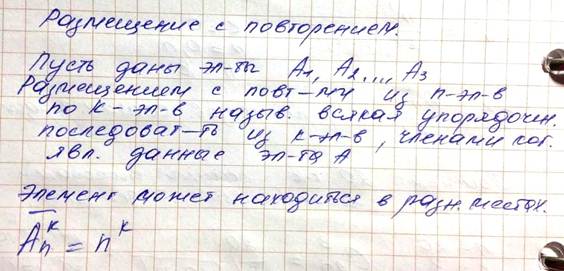 Размещение с повторением.
Пусть даны эл-ты A1, A2, ..., A3
Размещением с повт-ями из n-эл-в
по к-эл-в назыв. всякая упорядочен.
последоват-ть из к-эл-в, членами кот.
явл. данные эл-ты А
Элемент может находиться в разн. местах.
Āₙᵏ = nᵏ